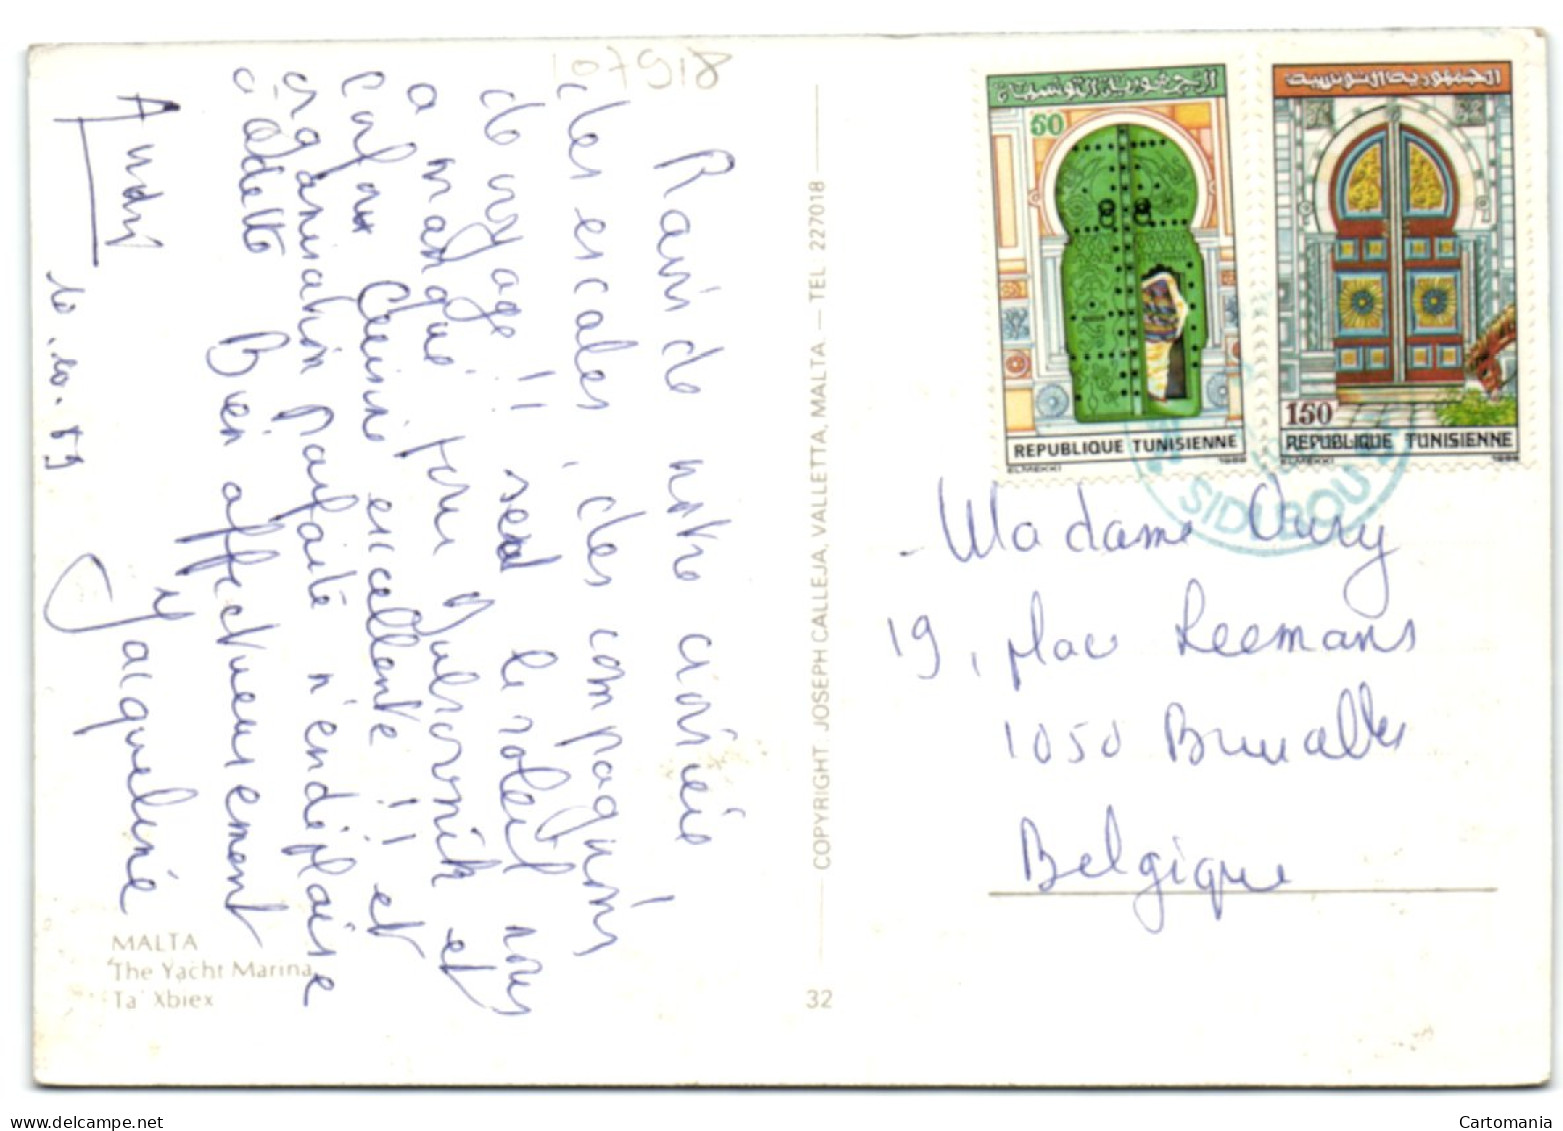 107918
Ravis de notre croisière
des escales, des compagnons
de voyage!! seul le soleil nous
a manqué pour Dubrovnik et
Corfou Cuisine excellente!! et
organisation parfaite n'en déplaise
à Odette Bien affectueusement
André Jacqueline
10.10.89
MALTA
The Yacht Marina,
Ta' Xbiex
COPYRIGHT JOSEPH CALLEJA, VALLETTA, MALTA — TEL 227018
32
الجمهورية التونسية
60
REPUBLIQUE TUNISIENNE
ELMEKKI 1988
الجمهورية التونسية
150
REPUBLIQUE TUNISIENNE
ELMEKKI 1988
SIDI BOU
Madame Oury
19, place Leemans
1050 Bruxelles
Belgique
www.delcampe.net
Cartomania